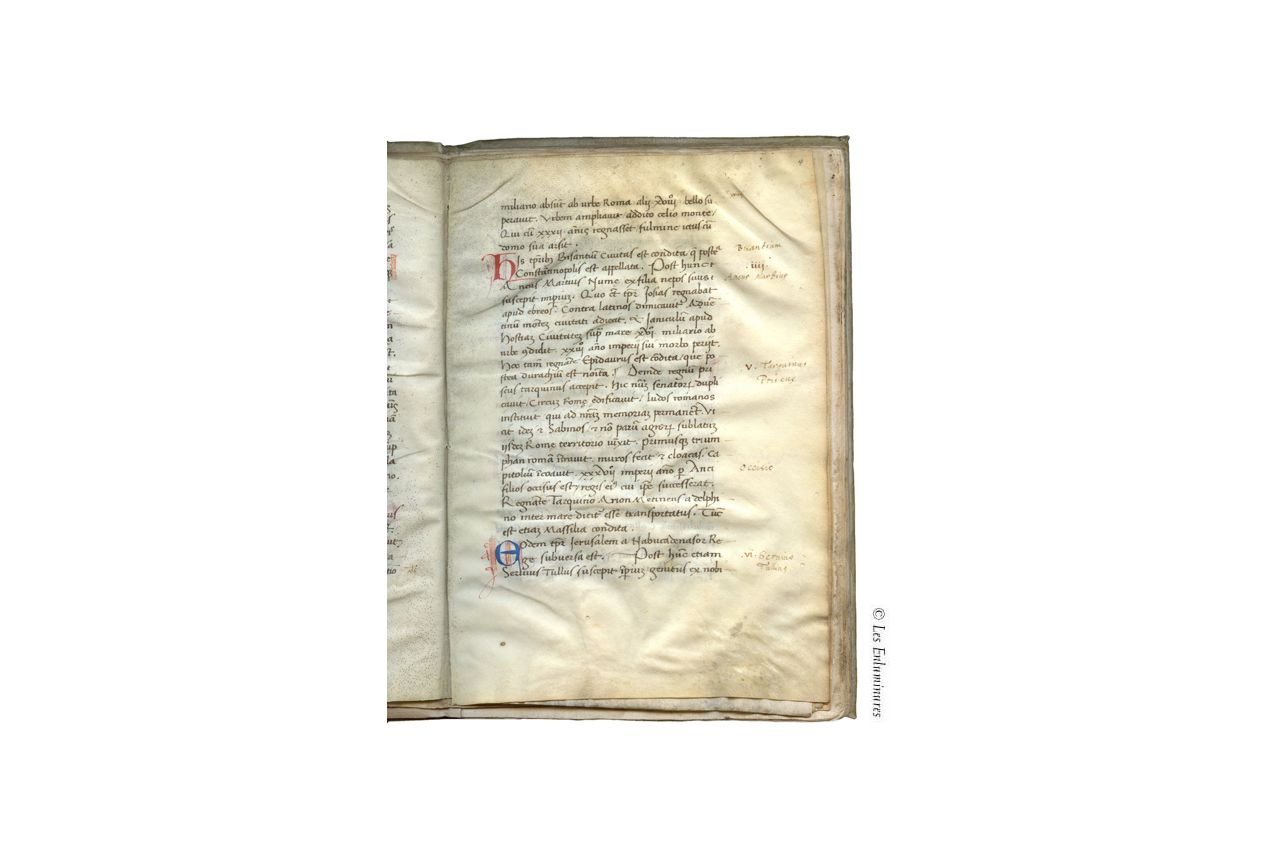 miliario absūt ab urbe Roma alij xviij bello su
peravit. Urbem ampliavit addito celio monte/
Qui cū xxxij añis regnasset fulmine ictus cū
domo sua arsit.
His tp̄rib; Bisantium Civitas est condita q̄ postea
Constātinopolis est appellata. Post hunc
Ancus Martius Nume ex filia nepos suus
suscepit imp̄iuz. Quo et tp̄r Josias regnabat
apud ebreos. Contra latinos dimicavit
montez civitati adiecit. & Janiculū apud
Hostiaz Civitatez sup̄ mare xvi miliario ab
urbe ꝯdidit. xxiij año imperij sui morbo perijt.
Hoc tam̄ regnāte Epidaurus est cōdita/que po
stea durachiū est Deinde regnū pri
scus tarquinus accepit. Hic nūz senatoꝝ dupli
cavit/Circuz Rome edificavit/ ludos romanos
instituit qui ad nr̄az memoriaz permanēt. Vi
cit idez & Sabinos & nō parū agroꝝ sublatuz
ijsdez Rome territorio iūxit. Primusqz trium
phan romā ītravit. muros fecit & cloacas. Ca
pitoliū īcoavit. xxxvij imperij año p̱ Anci
filios occisus est/ regis eiꝰ cui ip̄e successerat.
Regnāte Tarquino Arion Metineus a delphi
no inter mare dicit esse transportatus. Tūc
est etiaz Massilia condita.
Eodem tp̄r Jerusalem a Nabucadenasor Re
ge subversa est. Post hūc etiam
Servius Tullus suscepit īp̱iuz genitus ex nobi
Bisantium
.iiij.
Ancus Martius
V. Tarquinus
Priscus
Occisio
.vi. Servius
Tullus
© Les Enluminures